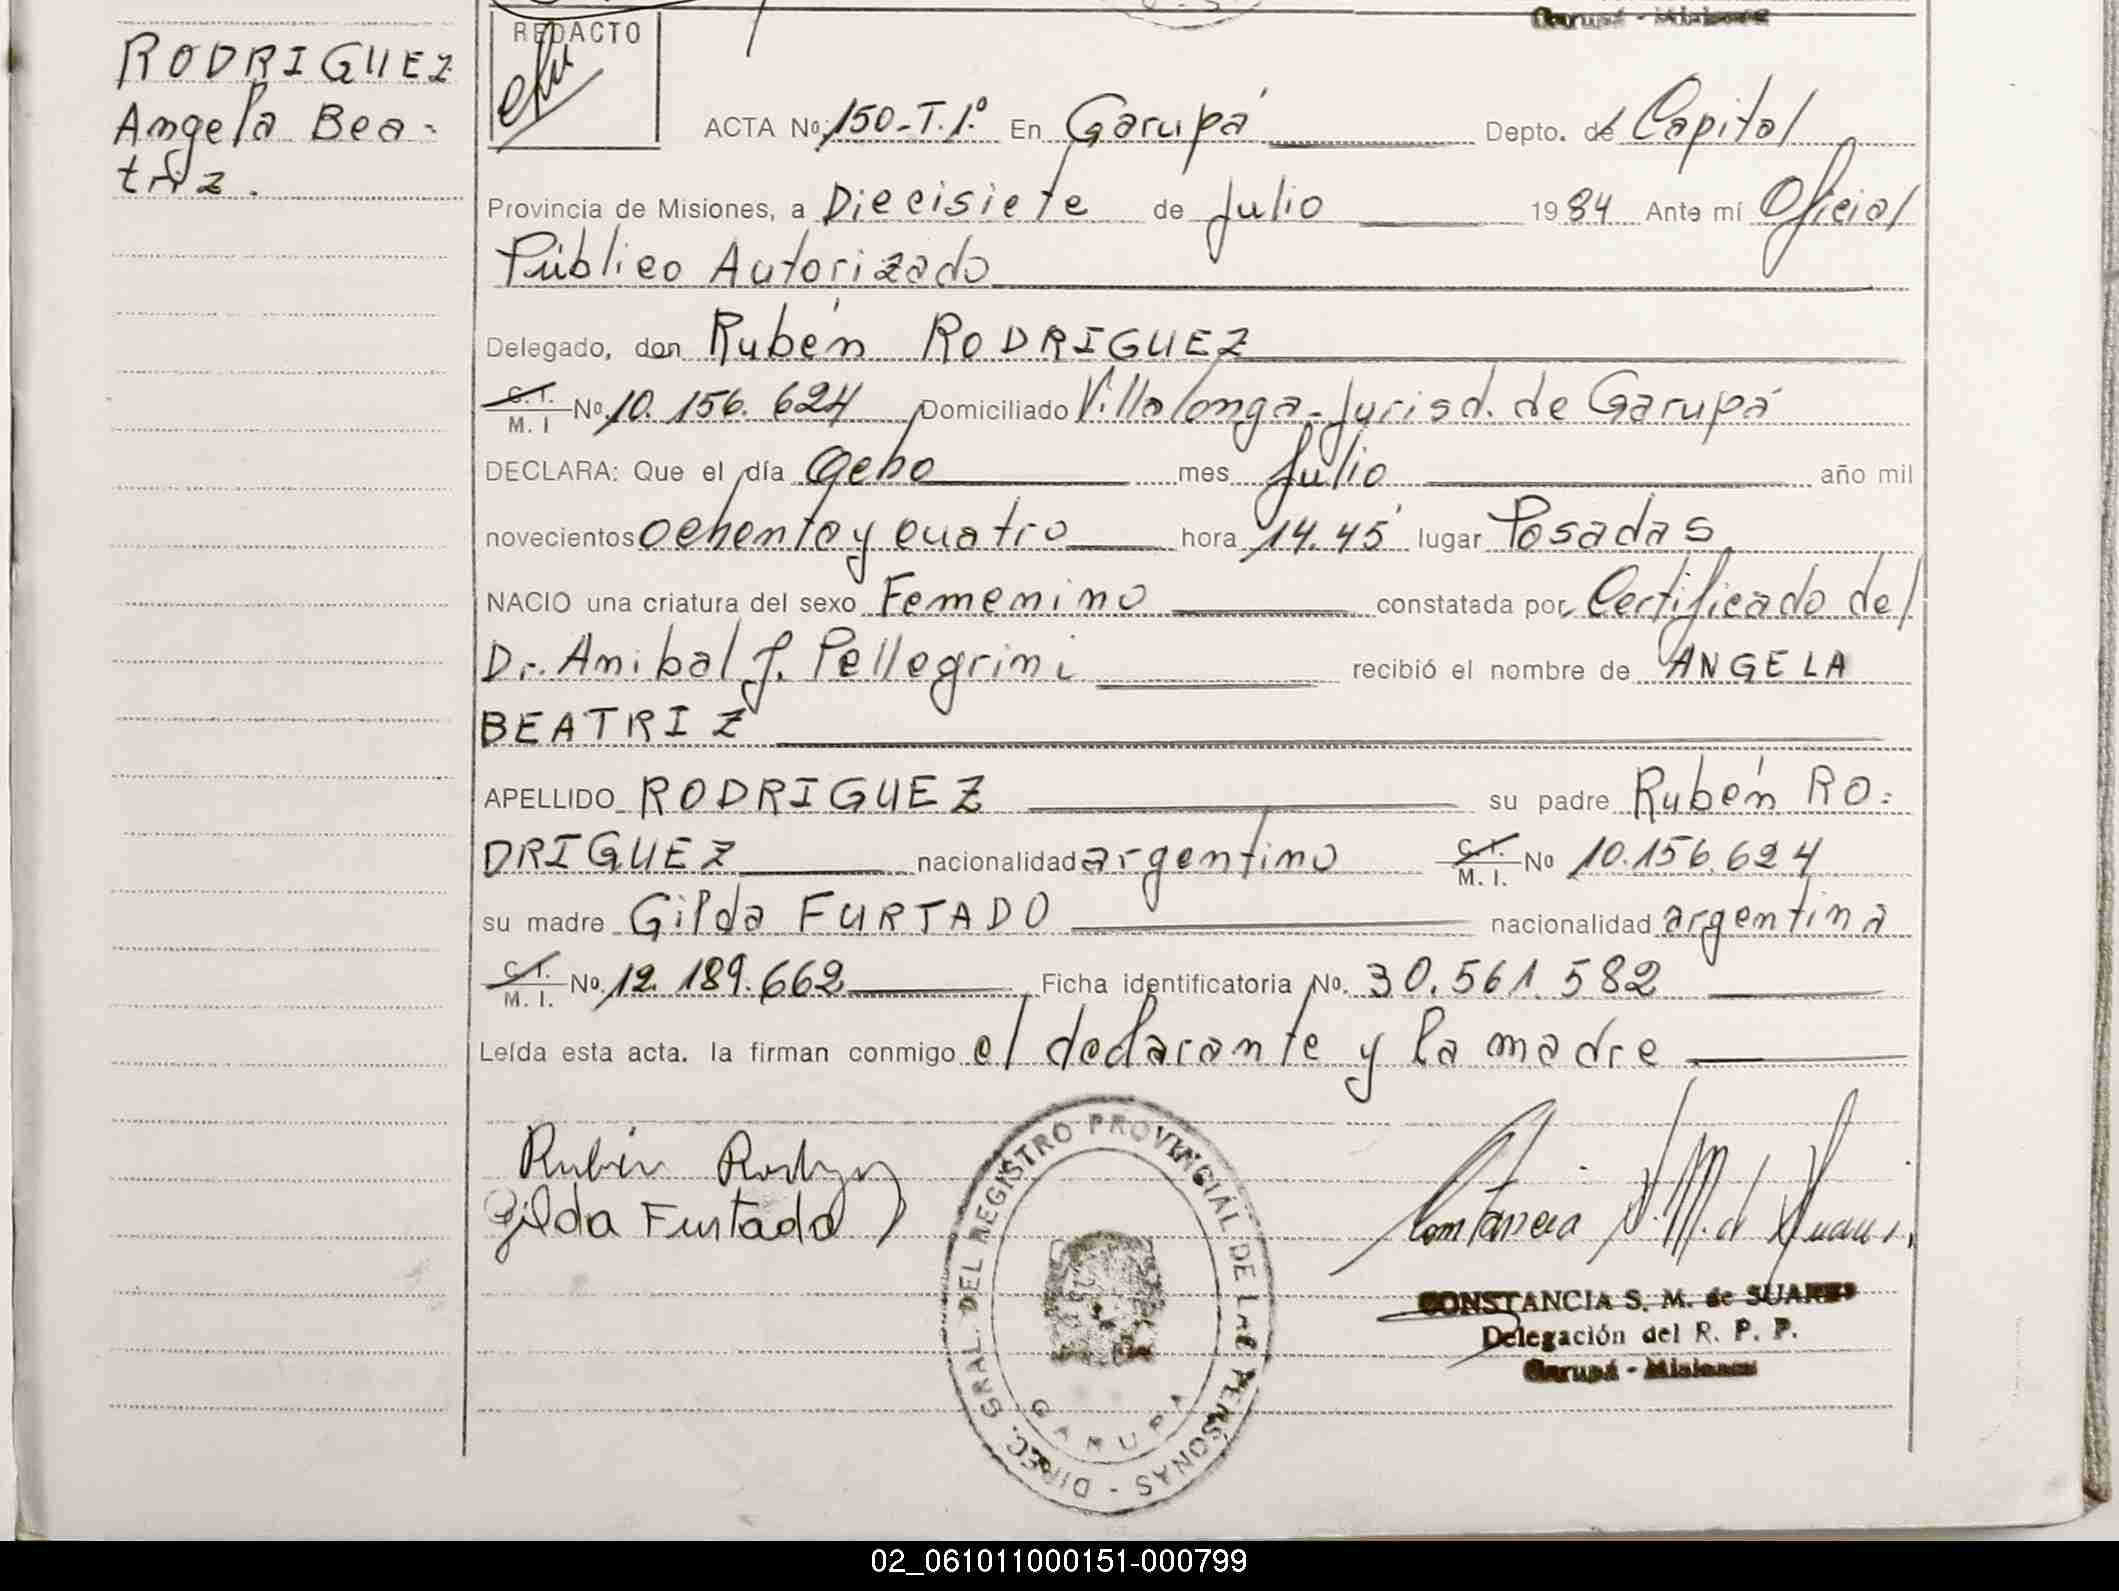 Garupá - Misiones
RODRIGUEZ
Angela Bea-
triz.
REDACTO
ACTA No. 150-T.1º En Garupá Depto. de Capital
Provincia de Misiones, a Diecisiete de Julio 1984 Ante mí Oficial
Público Autorizado
Delegado, don Rubén RODRIGUEZ
C.I. M. I No. 10.156.624 Domiciliado Villalonga-Jurisd. de Garupá
DECLARA: Que el día Ocho mes Julio año mil
novecientos ochenta y cuatro hora 14.45' lugar Posadas
NACIO una criatura del sexo Femenino constatada por Certificado del
Dr. Anibal J. Pellegrini recibió el nombre de ANGELA
BEATRIZ
APELLIDO RODRIGUEZ su padre Rubén RO-
DRIGUEZ nacionalidad argentino C.I. M. I. No 10.156.624
su madre Gilda FURTADO nacionalidad argentina
C.I. M. I. No. 12.189.662 Ficha identificatoria No. 30.561.582
Leída esta acta. la firman conmigo el declarante y la madre
Rubén
Gilda Furtado
Constancia S. M. d Suarez
DIREC. GRAL. DEL REGISTRO PROVINCIAL DE LAS PERSONAS -
GARUPA
CONSTANCIA S. M. de SUAREZ
Delegación del R. P. P.
Garupá - Misiones
02_061011000151-000799